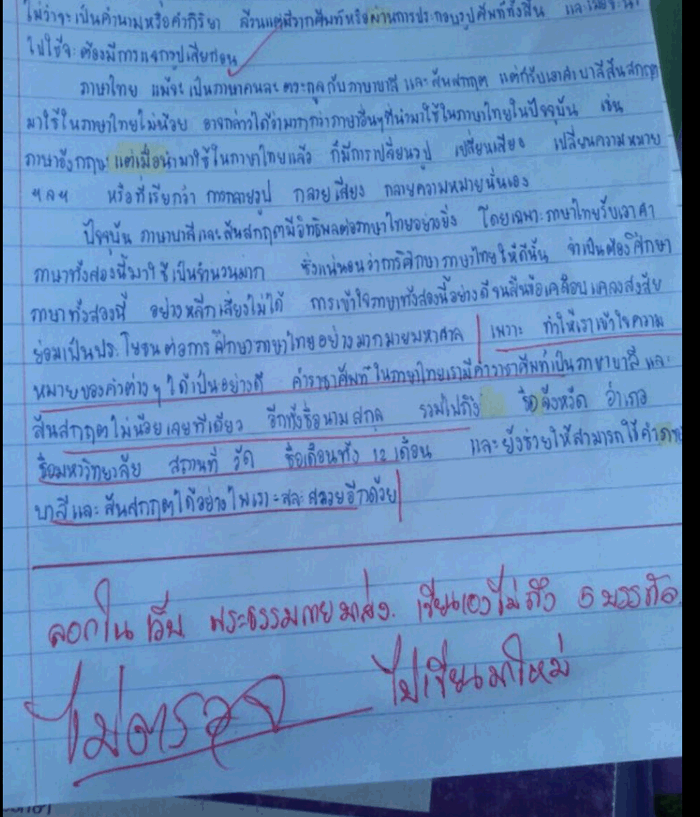 ไม่ว่าจะเป็นคำนามหรือคำกิริยา ล้วนแต่มีรากศัพท์หรือผ่านการประกอบรูปศัพท์ทั้งสิ้น และเมื่อจะนำ
ไปใช้จะต้องมีการแจกรูปเสียก่อน
ภาษาไทย แม้จะเป็นภาษาคนละตระกูลกับภาษาบาลี และสันสกฤต แต่ก็รับเอาคำบาลีสันสกฤต
มาใช้ในภาษาไทยไม่น้อย อาจกล่าวได้ว่ามากกว่าภาษาอื่นๆที่นำมาใช้ในภาษาไทยในปัจจุบัน เช่น
ภาษาอังกฤษ แต่เมื่อนำมาใช้ในภาษาไทยแล้ว ก็มีการเปลี่ยนรูป เปลี่ยนเสียง เปลี่ยนความหมาย
ฯลฯ หรือที่เรียกว่า การกลายรูป กลายเสียง กลายความหมายนั่นเอง
ปัจจุบัน ภาษาบาลีและสันสกฤตมีอิทธิพลต่อภาษาไทยอย่างยิ่ง โดยเฉพาะภาษาไทยรับเอาคำ
ภาษาทั้งสองนี้มาใช้เป็นจำนวนมาก ซึ่งแน่นอนว่าการศึกษาภาษาไทยให้ดีนั้น จำเป็นต้องศึกษา
ภาษาทั้งสองนี้ อย่างหลีกเลี่ยงไม่ได้ การเข้าใจภาษาทั้งสองนี้อย่างดีจนสิ้นข้อเคลือบแคลงสงสัย
ย่อมเป็นประโยชน์ต่อการศึกษาภาษาไทยอย่างมากมายมหาศาล เพราะ ทำให้เราเข้าใจความ
หมายของคำต่างๆ ได้เป็นอย่างดี คำราชาศัพท์ในภาษาไทยเรามีคำราชาศัพท์เป็นภาษาบาลี และ
สันสกฤตไม่น้อยเลยทีเดียว อีกทั้งชื่อนามสกุล รวมไปถึง ชื่อจังหวัด อำเภอ
ชื่อมหาวิทยาลัย สถานที่ วัด ชื่อเดือนทั้ง 12 เดือน และยังช่วยให้สามารถใช้คำภาษา
บาลีและสันสกฤตได้อย่างไพเราะสละสลวยอีกด้วย
ลอกใน เว็บ พระธรรมกายมาส่ง. เขียนเองไม่ถึง 5 บรรทัด
ไม่ตรวจ ไปเขียนมาใหม่